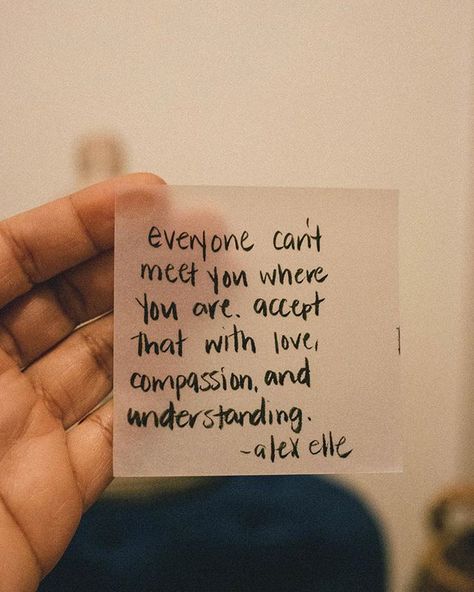 everyone can't
meet you where
you are. accept
that with love,
compassion, and
understanding.
-alex elle